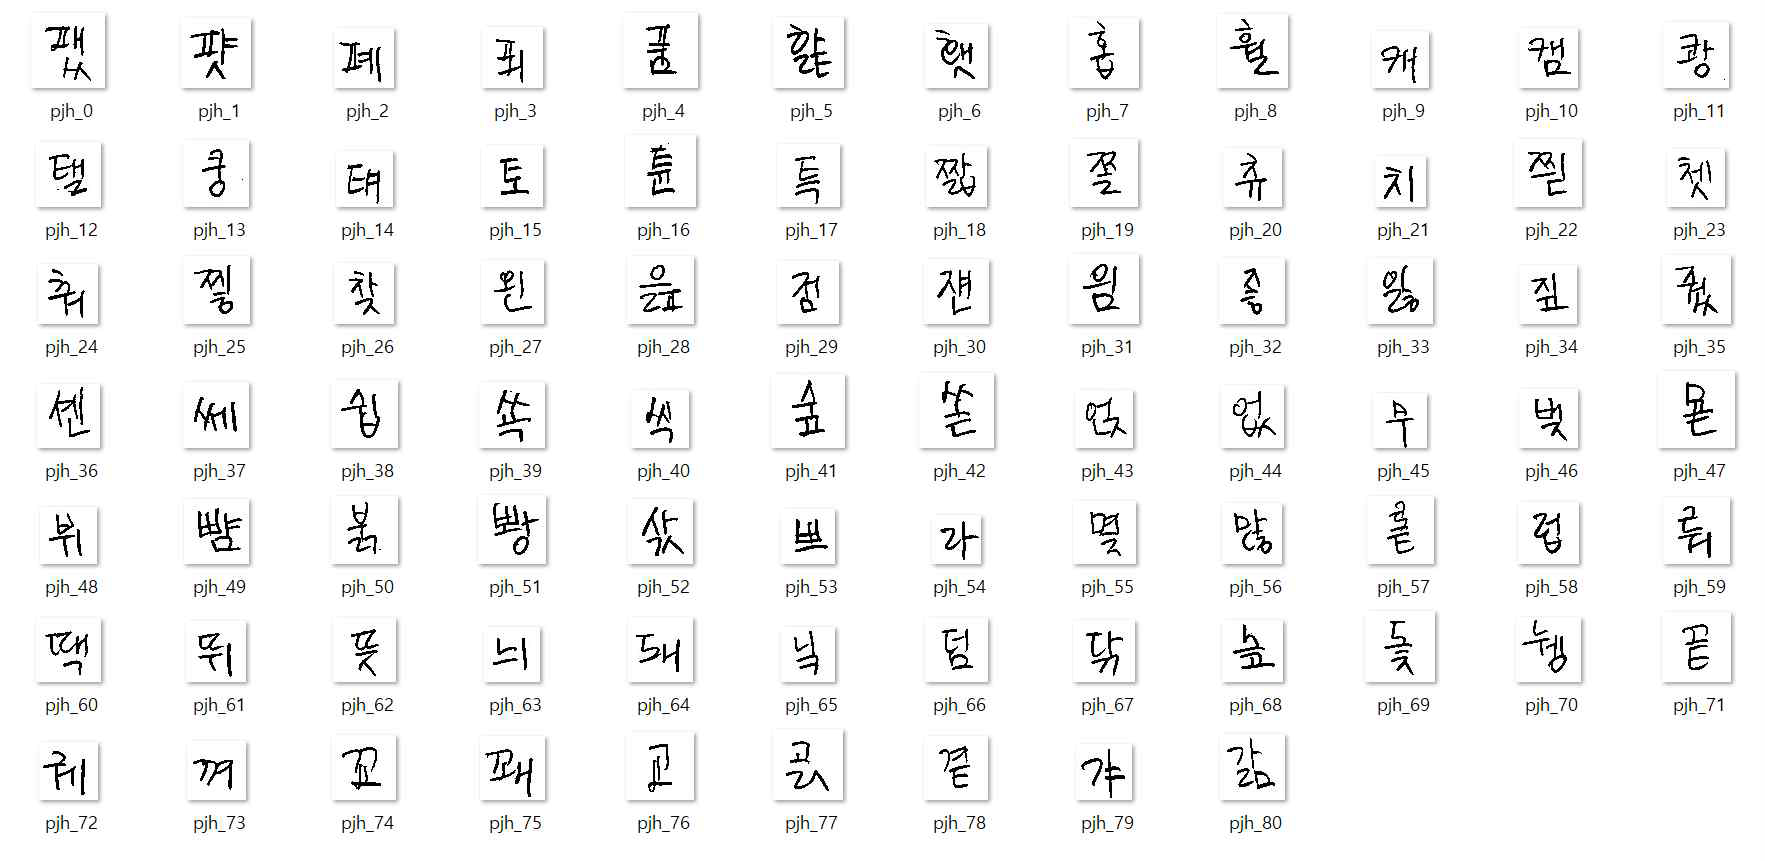 팼 퍗 폐 푀 품 햝 햇 홉 훨 캐 캠 쾅
pjh_0 pjh_1 pjh_2 pjh_3 pjh_4 pjh_5 pjh_6 pjh_7 pjh_8 pjh_9 pjh_10 pjh_11
탤 쿵 턔 토 튠 특 짧 쫄 츄 치 찔 쳇
pjh_12 pjh_13 pjh_14 pjh_15 pjh_16 pjh_17 pjh_18 pjh_19 pjh_20 pjh_21 pjh_22 pjh_23
춰 찔 찾 왼 읊 점 쟨 윔 좋 잃 짚 줬
pjh_24 pjh_25 pjh_26 pjh_27 pjh_28 pjh_29 pjh_30 pjh_31 pjh_32 pjh_33 pjh_34 pjh_35
센 쎄 쉽 쏙 씩 숲 쏟 얹 없 무 벚 묟
pjh_36 pjh_37 pjh_38 pjh_39 pjh_40 pjh_41 pjh_42 pjh_43 pjh_44 pjh_45 pjh_46 pjh_47
뷔 뺨 붉 빵 삯 쁘 라 몇 많 륱 럽 뤄
pjh_48 pjh_49 pjh_50 pjh_51 pjh_52 pjh_53 pjh_54 pjh_55 pjh_56 pjh_57 pjh_58 pjh_59
땍 뛰 뜻 늬 돼 닉 덤 닦 높 돛 눵 끝
pjh_60 pjh_61 pjh_62 pjh_63 pjh_64 pjh_65 pjh_66 pjh_67 pjh_68 pjh_69 pjh_70 pjh_71
궤 껴 꾜 꽤 굔 곬 곁 갸 갊
pjh_72 pjh_73 pjh_74 pjh_75 pjh_76 pjh_77 pjh_78 pjh_79 pjh_80